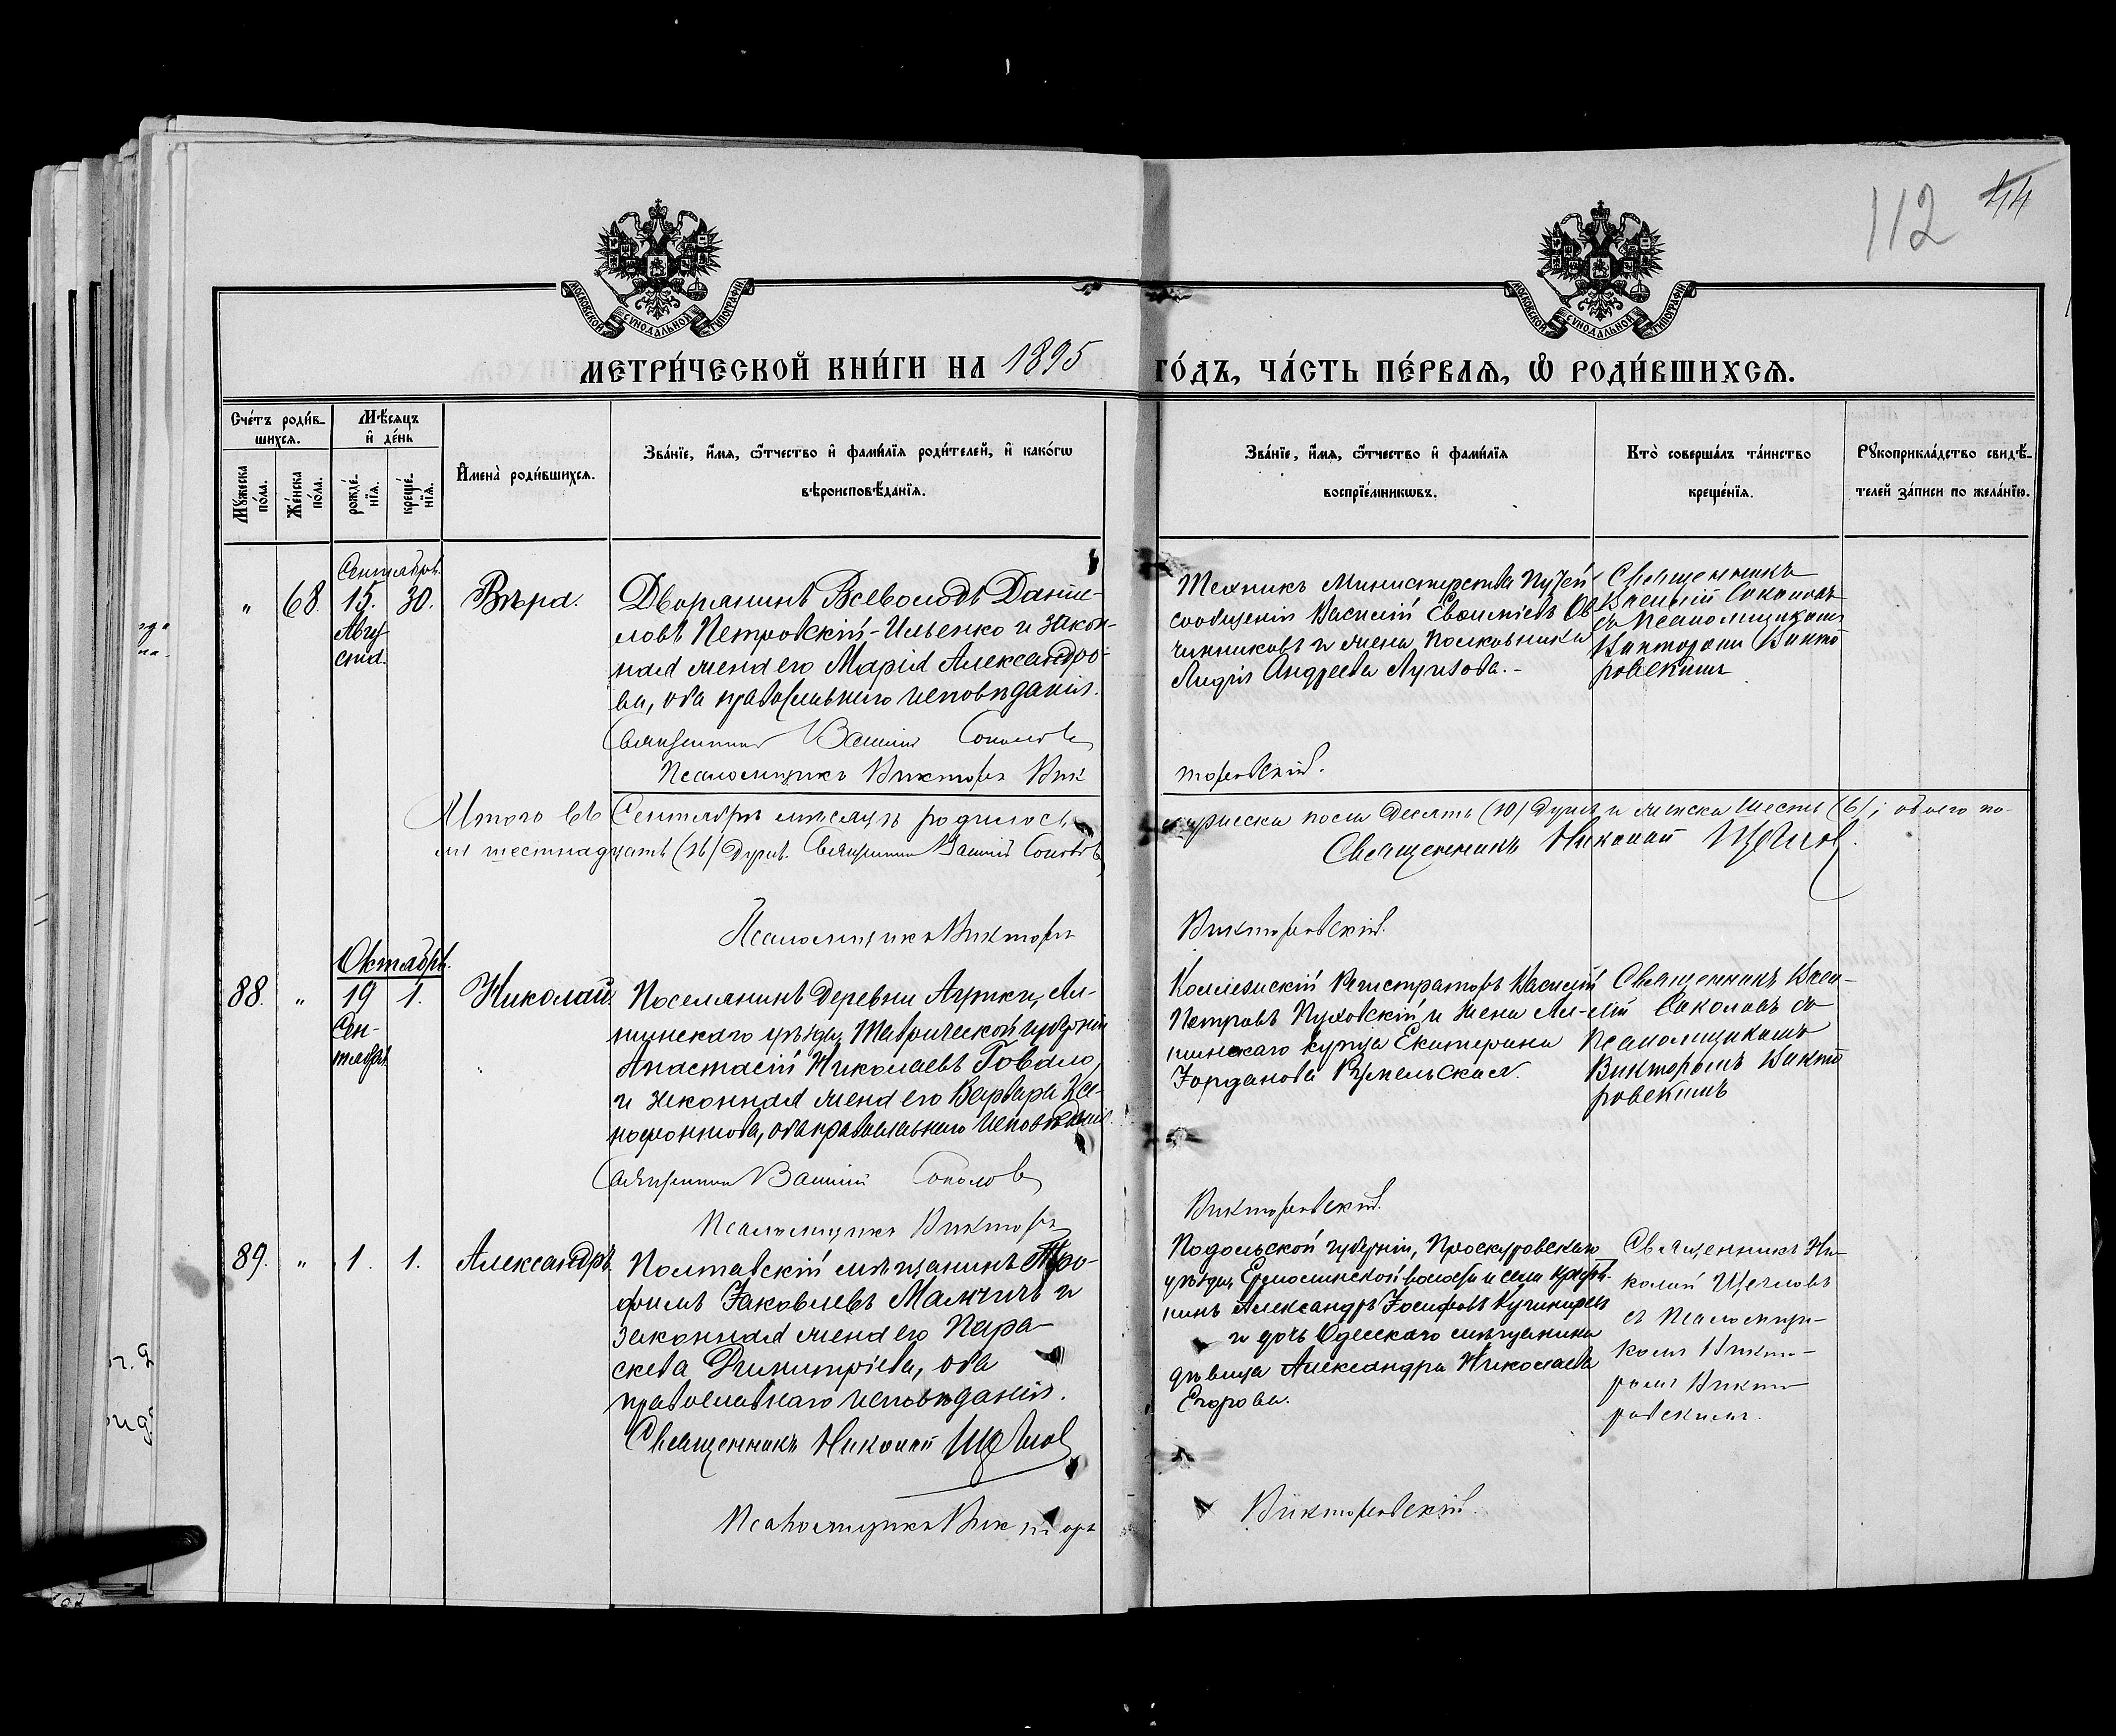 112 44
МОСКОВСКОЙ СУНОДАЛЬНОЙ ТИПОГРАФІИ
МОСКОВСКОЙ СУНОДАЛЬНОЙ ТИПОГРАФІИ
МЕТРИ́ЧЕСКОЙ КНИ́ГИ НА 1895 ГО́ДЪ, ЧА́СТЬ ПЕ́РВАѦ, Ѡ҆ РОДИ́ВШИХСѦ.
Сче́тъ роди́в-
шихсѧ.
Мѣ́сѧцъ
и҆ де́нь
Мꙋ́жеска
по́ла.
Же́нска
по́ла.
рожде́-
нїѧ.
креще́-
нїѧ.
И҆мена̀ роди́вшихсѧ.
Зва́нїе, и҆́мѧ, ѻ҆́тчество и҆ фами́лїѧ роди́телей, и҆ како́гѡ
вѣроисповѣ́данїѧ.
Зва́нїе, и҆́мѧ, ѻ҆́тчество и҆ фами́лїѧ
воспрїе́мникѡвъ.
Кто̀ соверша́лъ та́инство
креще́нїѧ.
Рꙋкоприкла́дство свидѣ́-
телей за́писи по жела́нїю.
Сентябрь.
" 68. 15. 30. Вѣра.
Авгу-
ста.
Дворянинъ Всеволодъ Дани-
ловъ Петровскій-Ильенко и закон-
ная жена его Марія Александро-
ва, оба православнаго исповѣданія.
Священникъ Василій Соколовъ
Псаломщикъ Викторъ Вик
Техникъ Министерства Путей
сообщенія Василій Евфиміевъ Ов-
чинниковъ и жена полковника
Лидія Андреева
Священникъ
Василій Соколовъ
съ псаломщикомъ
Викторомъ Викто
ровскимъ
торовскій.
Итого въ Сентябрѣ мѣсяцѣ родилось мужеска пола десять (10) душъ и женска шесть (6); обоего по-
ла шестнадцать (16) душъ. Священникъ Василій Соколовъ Священникъ Николай Щегловъ.
Псаломщикъ Викторъ Викторовскій.
Октябрь.
88. " 19 1. Николай
Сен-
тября
Поселянинъ деревни Ал-
шинскаго уѣзда, Таврической губерніи
Анастасій Николаевъ Говало,
и законная жена его Варвара Кси-
нофонтова, оба православнаго исповѣданія.
Священникъ Василій Соколовъ
Псаломщикъ Викторъ
Коллежскій Регистраторъ Василій
Петровъ Пуховскій и жена Ал-
шинскаго купца Екатерина
Іорданова Румельская.
Священникъ Васи-
лій Соколовъ съ
псаломщикомъ
Викторомъ Викто
ровскимъ
Викторовскій.
89. " 1. 1. Александръ.
Полтавскій мѣщанинъ Тро-
фимъ Іаковлевъ Мамчичъ и
законная жена его Пара-
скева Димитріева, оба
православнаго исповѣданія.
Священникъ Николай Щегловъ
Псаломщикъ Викторъ
Подольской губерніи, Проскуровскаго
уѣзда, Ермолинской волости и села крестья-
нинъ Александръ Іосифовъ
и дочь Одесскаго мѣщанина
дѣвица Александра Николаева
Егорова.
Священникъ Ни-
колай Щегловъ
съ псаломщи-
комъ Викто-
ромъ Викто-
ровскимъ.
Викторовскій.